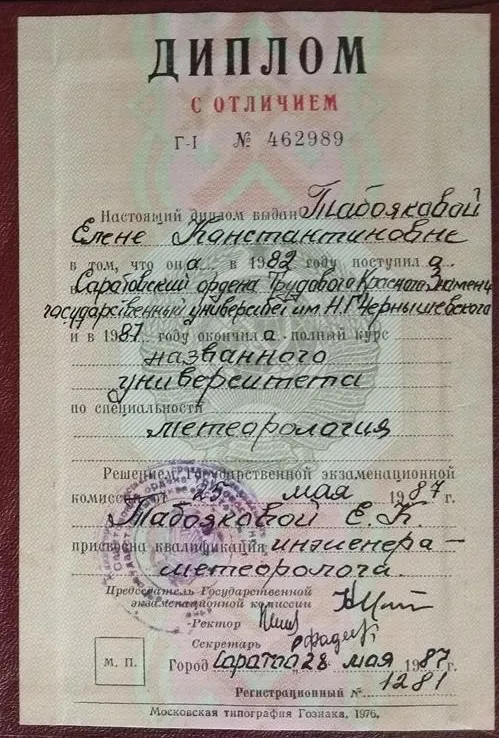 ДИПЛОМ
С ОТЛИЧИЕМ
Г-I № 462989
Настоящий диплом выдан Табояковой
Елене Константиновне
в том, что она в 1982 году поступила
в Саратовский ордена Трудового Красного Знамени
государственный университет им. Н.Г. Чернышевского
и в 1987 году окончила полный курс
названного
университета
по специальности
метеорология
Решением Государственной экзаменационной
комиссии от 25 мая 1987 г.
Табояковой Е. К.
присвоена квалификация инженера-
метеоролога.
Председатель Государственной
экзаменационной комиссии
Ректор
Секретарь
М. П.
Город Саратов 28 мая 1987 г.
Регистрационный № 1281
Московская типография Гознака, 1976.